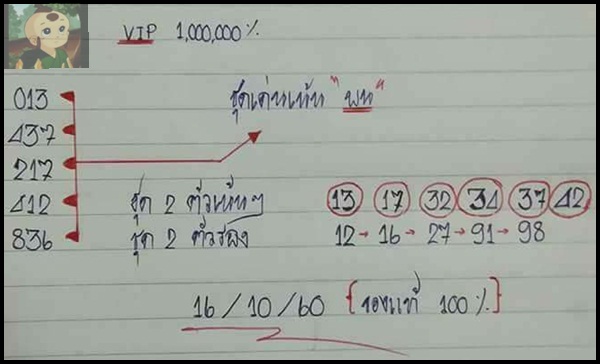 VIP 1,000,000%
013
437
217
412
836
ชุดเด่นเน้น "บน"
ชุด 2 ตัวเน้นๆ 13 17 32 34 37 42
ชุด 2 ตัวรอง 12 → 16 → 27 → 91 → 98
16/10/60 {ของแท้ 100%}